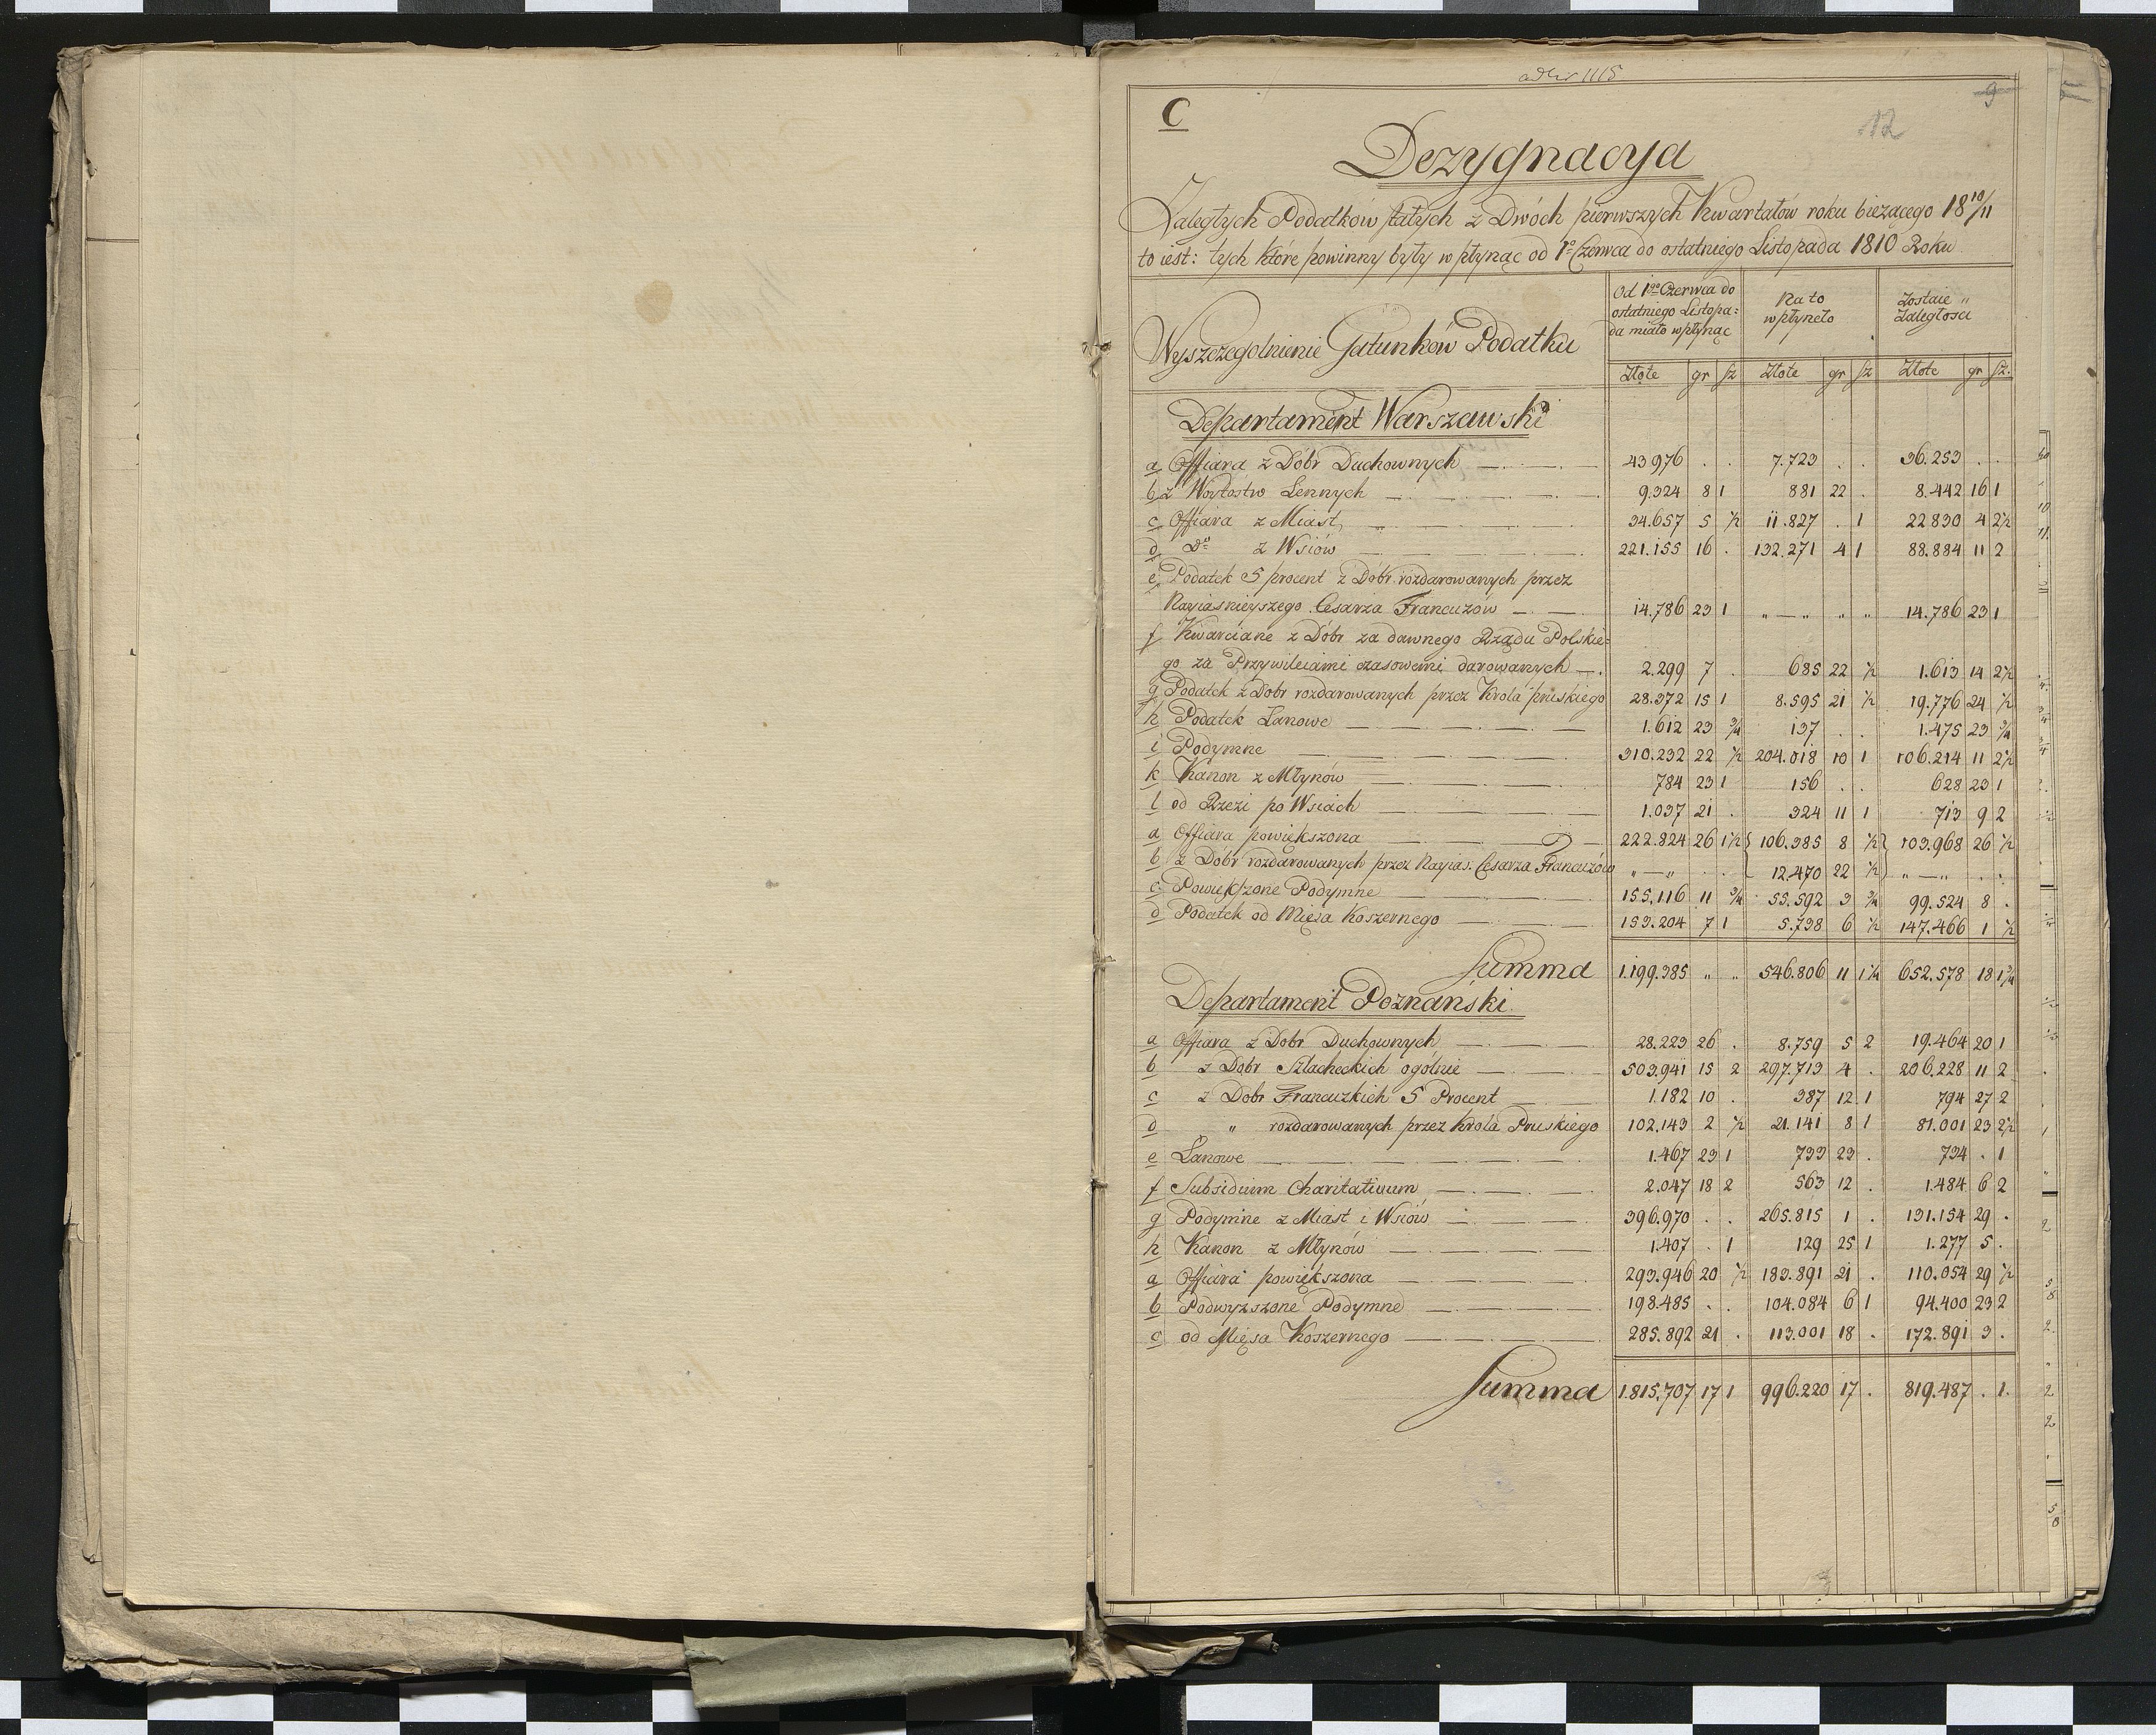 ad Nr 1115
C
9
12
Dezygnacya
Zaległych Podatków stałych z Dwóch pierwszych Kwartałów roku bieżącego 18 10/11
to iest: tych które powinny były wpłynąć od 1º Czerwca do ostatniego Listopada 1810 Roku
Wyszczegolnienie Gatunków Podatku
Od 1go Czerwca do ostatniego Listopa= da miało wpłynąć
Na to wpłyneło
Zostaie „ Zaległości
Złote gr sz Złote gr sz Złote gr sz.
Departament Warszawski
a Offiara z Dobr Duchownych 43976 . . 7.723 . . 36.253 . .
b z Woytostw Lennych 9.324 8 1 881 22 . 8.442 16 1
c Offiara z Miast 34.657 5 1/2 11.827 . 1 22830 4 2 1/2
d Do z Wsiów 221.155 16 . 132.271 4 1 88.884 11 2
e Podatek 5 procent z Dóbr rozdarowanych przez
Nayiasnieyszego Cesarza Francuzów 14.786 23 1 „ — „ „ „ 14.786 23 1
f Kwarciane z Dóbr za dawnego Rządu Polskie=
go za Przywileiami czasowemi darowanych 2.299 7 . 685 22 1/2 1.613 14 2 1/2
g Podatek z Dobr rozdarowanych przez Krola pruskiego 28.372 15 1 8.595 21 1/2 19.776 24 1/2
h Podatek Lanowe 1.612 23 3/4 137 . . 1.475 23 3/4
i Podymne 310.232 22 1/2 204.018 10 1 106.214 11 2 1/2
k Kanon z Młynów 784 23 1 156 . . 628 23 1
l od Rzezi po Wsiach 1.037 21 . 324 11 1 713 9 2
a Offiara powiększona 222.824 26 1 1/2 106.385 8 1/2 103.968 26 1/2
b z Dóbr rozdarowanych przez Nayias. Cesarza Francuzów „ — „ . . 12.470 22 1/2 „ — „ . .
c Powiększone Podymne 155.116 11 3/4 55.592 3 3/4 99.524 8 .
d Podatek od Mięsa Koszernego 153.204 7 1 5.738 6 1/2 147.466 1 1/2
Summa 1.199.385 „ „ 546.806 11 1 1/4 652.578 18 1 3/4
Departament Poznański.
a Offiara z Dobr Duchownych 28.223 26 . 8.759 5 2 19.464 20 1
b z Dobr Szlacheckich ogólnie 503.941 15 2 297.713 4 . 206.228 11 2
c z Dobr Francuzkich 5 Procent 1.182 10 . 387 12 1 794 27 2
d „ rozdarowanych przez Króla Pruskiego 102.143 2 1/2 21.141 8 1 81.001 23 2 1/2
e Lanowe 1.467 23 1 733 23 . 734 . 1
f Subsidium Charitativum 2.047 18 2 563 12 . 1.484 6 2
g Podymne z Miast i Wsiów 396.970 . . 265.815 1 . 131.154 29 .
h Kanon z Młynów 1.407 . 1 129 25 1 1.277 5 .
a Offiara powiększona 293.946 20 1/2 183.891 21 . 110.054 29 1/2
b Podwyzszone Podymne 198.485 . . 104.084 6 1 94.400 23 2
c od Mięsa Koszernego 285.892 21 . 113.001 18 . 172.891 3 .
Summa 1.815.707 17 1 996.220 17 . 819.487 . 1.